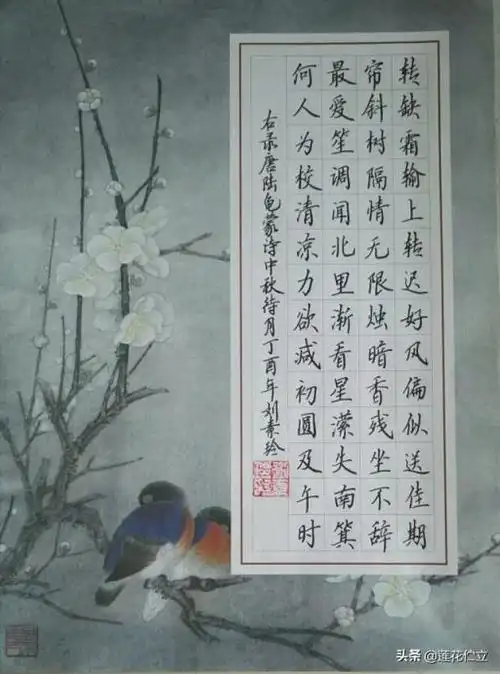 转缺霜输上转迟好风偏似送佳期
帘斜树隔情无限烛暗香残坐不辞
最爱笙调闻北里渐看星潆失南箕
何人为校清凉力欲减初圆及午时
右录唐陆龟蒙诗中秋待月丁酉年刘素
头条 @莲花伫立